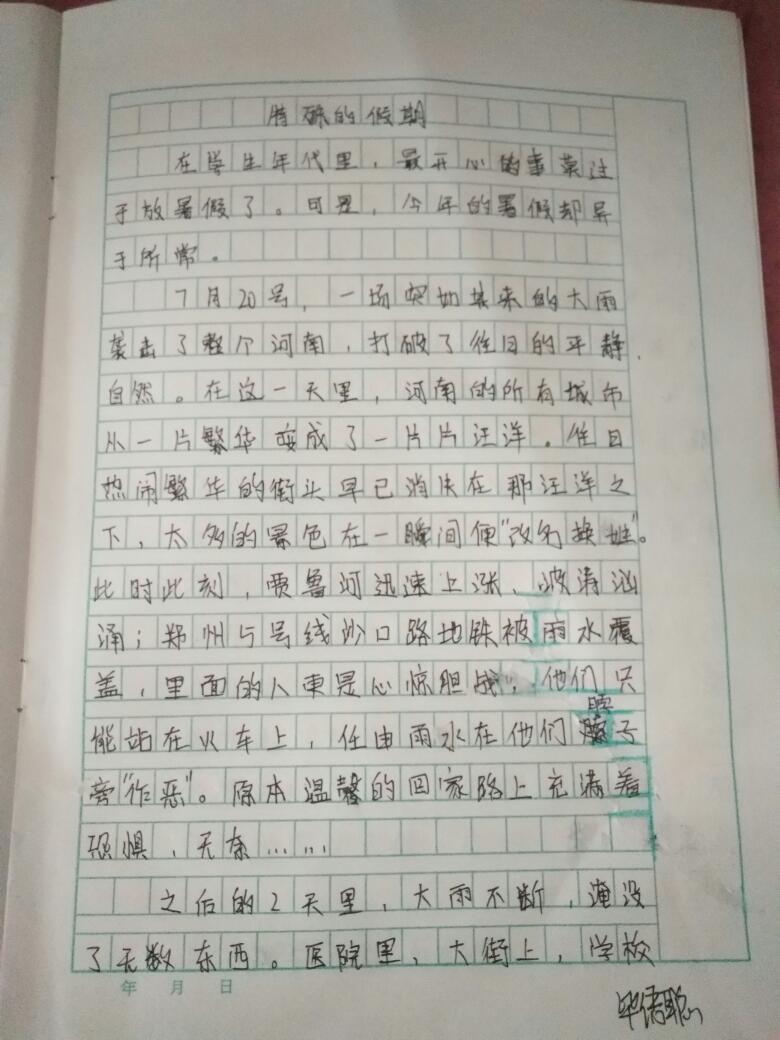 特殊的假期
在学生年代里，最开心的事莫过
于放暑假了。可是，今年的暑假却异
于所常。
7月20号，一场突如其来的大雨
袭击了整个河南，打破了往日的平静，
自然。在这一天里，河南的所有城市
从一片繁华变成了一片片汪洋。往日
热闹繁华的街头早已消失在那汪洋之
下，太多的景色在一瞬间便"改名换姓"。
此时此刻，贾鲁河迅速上涨、波涛汹
涌；郑州5号线沙口路地铁被雨水覆
盖，里面的人更是心惊胆战，他们只
能站在火车上，任由雨水在他们脖子
旁"作恶"。原本温馨的回家路上充满着
恐惧、无奈……
之后的2天里，大雨不断，淹没
了无数东西。医院里、大街上，学校
年 月 日